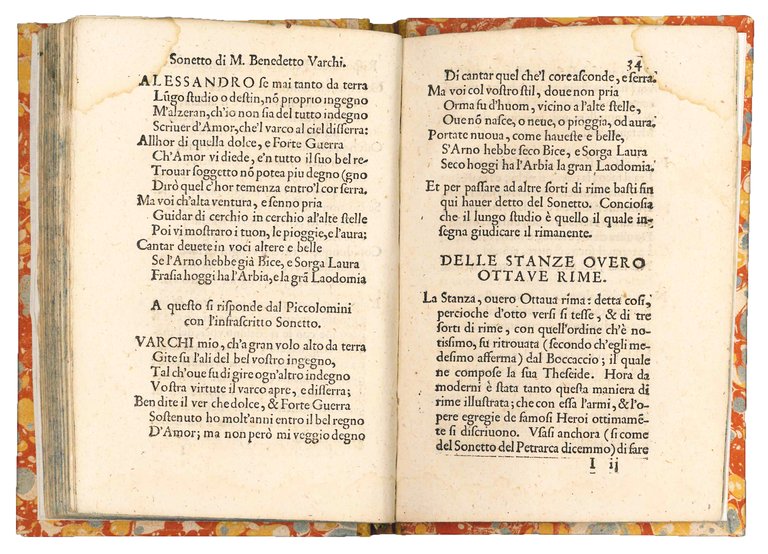 Sonetto di M. Benedetto Varchi.
ALESSANDRO se mai tanto da terra
Lũgo studio o destin, nõ proprio ingegno
M'alzeran, ch'io non sia del tutto indegno
Scriuer d'Amor, che'l varco al ciel disserra:
Allhor di quella dolce, e Forte Guerra
Ch'Amor vi diede, e'n tutto il suo bel re-
Trouar soggetto nõ potea piu degno (gno
Dirò quel c'hor temenza entro'l cor serra.
Ma voi ch'alta ventura, e senno pria
Guidar di cerchio in cerchio al'alte stelle
Poi vi mostraro i tuon, le pioggie, e l'aura;
Cantar deuete in voci altere e belle
Se l'Arno hebbe già Bice, e Sorga Laura
Frasia hoggi ha l'Arbia, e la grã Laodomia
A questo si risponde dal Piccolomini
con l'infrascritto Sonetto.
VARCHI mio, ch'a gran volo alto da terra
Gite su l'ali del bel vostro ingegno,
Tal ch'oue su di gire ogn'altro indegno
Vostra virtute il varco apre, e disserra;
Ben dite il ver che dolce, & Forte Guerra
Sostenuto ho molt'anni entro il bel regno
D'Amor; ma non però mi veggio degno
34
Di cantar quel che'l core asconde, e serra.
Ma voi col vostro stil, doue non pria
Orma fu d'huom, vicino a l'alte stelle,
Oue nõ nasce, o neue, o pioggia, od aura.
Portate nuoua, come haueste e belle,
S'Arno hebbe seco Bice, e Sorga Laura
Seco hoggi ha l'Arbia la gran Laodomia.
Et per passare ad altre sorti di rime basti fin
qui hauer detto del Sonetto. Conciosia
che il lungo studio è quello il quale in-
segna giudicare il rimanente.
DELLE STANZE OVERO
OTTAVE RIME.
La Stanza, ouero Ottaua rima: detta cosi,
percioche d'otto versi si tesse, & di tre
sorti di rime, con quell'ordine ch'è no-
tissimo, fu ritrouata (secondo ch'egli me-
desimo afferma) dal Boccaccio; il quale
ne compose la sua Theseide. Hora da
moderni è stata tanto questa maniera di
rime illustrata; che con essa l'armi, & l'o-
pere egregie de famosi Heroi ottimamẽ-
te si discriuono. Vsasi anchora (si come
del Sonetto del Petrarca dicemmo) di fare
I ij